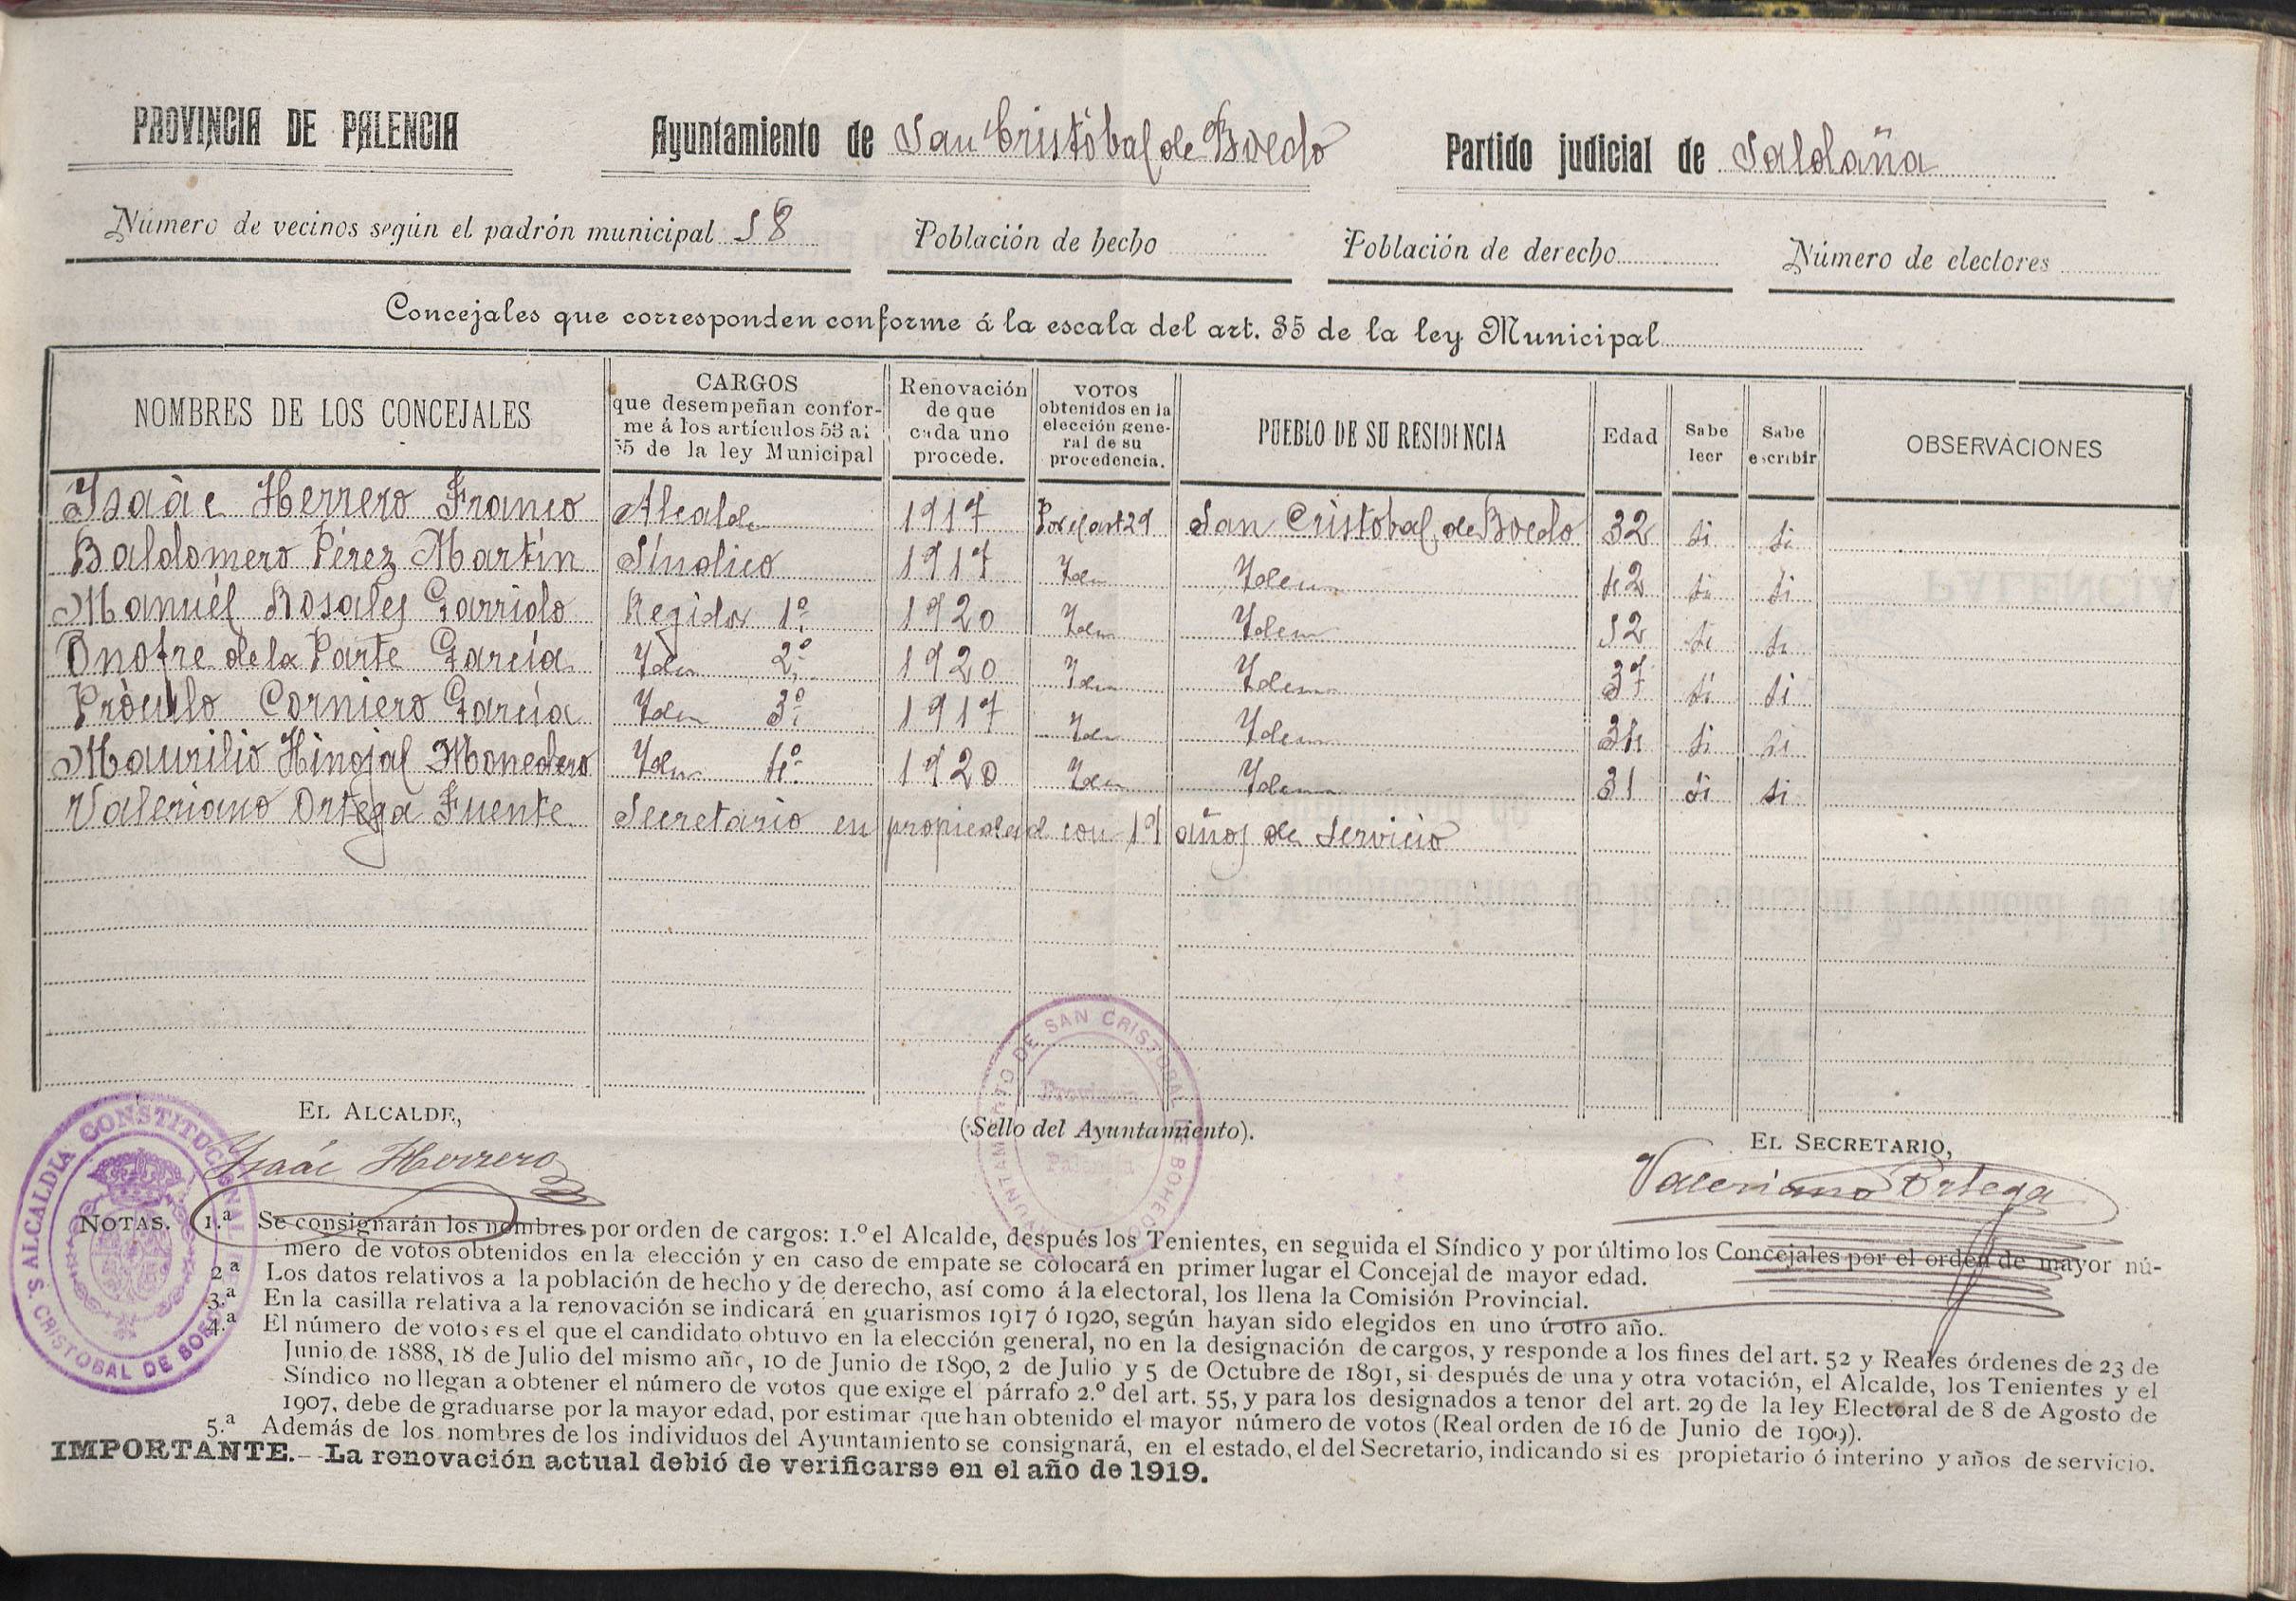 PROVINCIA DE PALENCIA Ayuntamiento de San Cristóbal de Boedo Partido judicial de Saldaña
Número de vecinos según el padrón municipal 58 Población de hecho Población de derecho Número de electores
Concejales que corresponden conforme á la escala del art. 35 de la ley Municipal
NOMBRES DE LOS CONCEJALES
CARGOS
que desempeñan confor-
me á los artículos 53 al
55 de la ley Municipal
Renovación
de que
cada uno
procede.
VOTOS
obtenidos en la
elección gene-
ral de su
procedencia.
PUEBLO DE SU RESIDENCIA
Edad
Sabe
leer
Sabe
escribir
OBSERVACIONES
Isaác Herrero Franco Alcalde 1917 Por el art 29 San Cristobal de Boedo 32 si si
Baldomero Pérez Martín Síndico 1917 Idem Idem 42 si si
Manuél Rosales Garrido Regidor 1º 1920 Idem Idem 52 si si
Onofre de la Parte García Idem 2º 1920 Idem Idem 37 si si
Próculo Corniero García Idem 3º 1917 Idem Idem 34 si si
Maurilio Hinojal Monedero Idem 4º 1920 Idem Idem 31 si si
Valeriano Ortega Fuente Secretario en propiedad con 19 años de servicio
AYUNTAMIENTO DE SAN CRISTOBAL DE BOHEDO
Provincia
Palencia
EL ALCALDE,
(Sello del Ayuntamiento).
EL SECRETARIO,
Isaác Herrero
Valeriano Ortega
ALCALDIA CONSTITUCIONAL DE S. CRISTOBAL DE BOEDO
NOTAS. 1.ª Se consignarán los nombres por orden de cargos: 1.º el Alcalde, después los Tenientes, en seguida el Síndico y por último los Concejales por el orden de mayor nú-
mero de votos obtenidos en la elección y en caso de empate se colocará en primer lugar el Concejal de mayor edad.
2.ª Los datos relativos a la población de hecho y de derecho, así como á la electoral, los llena la Comisión Provincial.
3.ª En la casilla relativa a la renovación se indicará en guarismos 1917 ó 1920, según hayan sido elegidos en uno ú otro año.
4.ª El número de votos es el que el candidato obtuvo en la elección general, no en la designación de cargos, y responde a los fines del art. 52 y Reales órdenes de 23 de
Junio de 1888, 18 de Julio del mismo año, 10 de Junio de 1890, 2 de Julio y 5 de Octubre de 1891, si después de una y otra votación, el Alcalde, los Tenientes y el
Síndico no llegan a obtener el número de votos que exige el párrafo 2.º del art. 55, y para los designados a tenor del art. 29 de la ley Electoral de 8 de Agosto de
1907, debe de graduarse por la mayor edad, por estimar que han obtenido el mayor número de votos (Real orden de 16 de Junio de 1909).
5.ª Además de los nombres de los individuos del Ayuntamiento se consignará, en el estado, el del Secretario, indicando si es propietario ó interino y años de servicio.
IMPORTANTE.—La renovación actual debió de verificarse en el año de 1919.